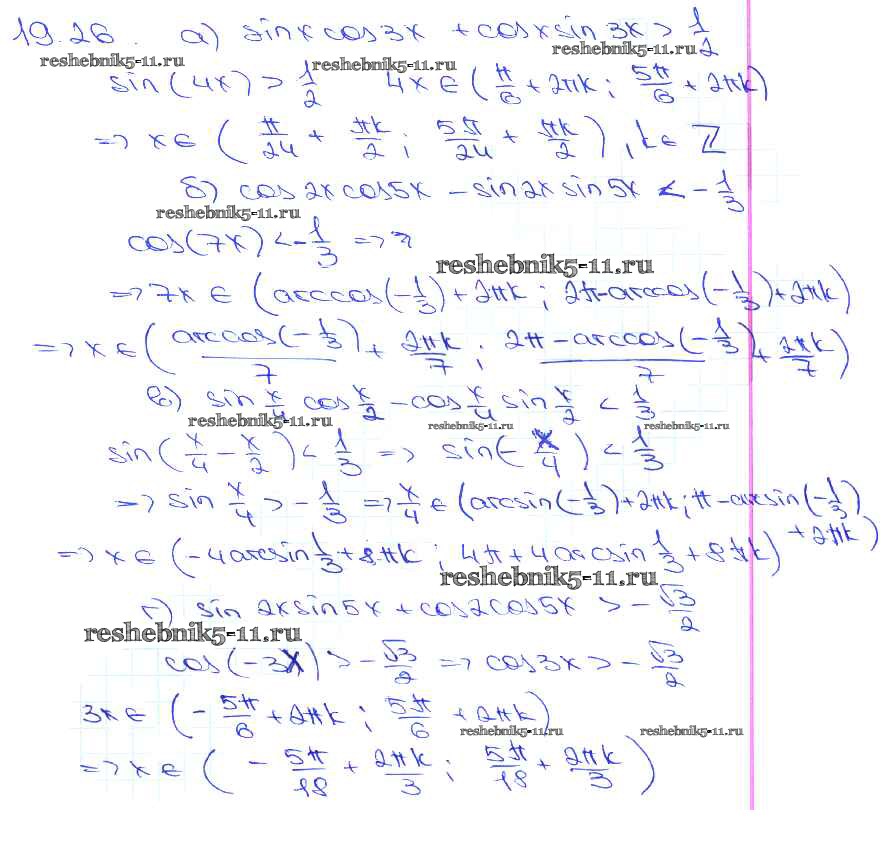 19.26. а) sinx cos3x + cosx sin3x > 1/2
reshebnik5-11.ru reshebnik5-11.ru
sin(4x) > 1/2 4x ∈ (π/6 + 2πk ; 5π/6 + 2πk)
reshebnik5-11.ru
=> x ∈ (π/24 + πk/2 ; 5π/24 + πk/2), k ∈ Z
б) cos2x cos5x - sin2x sin5x < -1/3
reshebnik5-11.ru
cos(7x) < -1/3 =>
reshebnik5-11.ru
=> 7x ∈ (arccos(-1/3) + 2πk ; 2π - arccos(-1/3) + 2πk)
=> x ∈ (arccos(-1/3)/7 + 2πk/7 ; 2π - arccos(-1/3)/7 + 2πk/7)
в) sin x/4 cos x/2 - cos x/4 sin x/2 < 1/3
reshebnik5-11.ru reshebnik5-11.ru reshebnik5-11.ru
sin(x/4 - x/2) < 1/3 => sin(-x/4) < 1/3
=> sin x/4 > -1/3 => x/4 ∈ (arcsin(-1/3) + 2πk ; π - arcsin(-1/3) + 2πk)
=> x ∈ (-4arcsin 1/3 + 8πk ; 4π + 4arcsin 1/3 + 8πk)
reshebnik5-11.ru
г) sin 2x sin5x + cos2cos5x > -√3/2
reshebnik5-11.ru
cos(-3x) > -√3/2 => cos3x > -√3/2
3x ∈ (-5π/6 + 2πk ; 5π/6 + 2πk)
reshebnik5-11.ru reshebnik5-11.ru
=> x ∈ (-5π/18 + 2πk/3 ; 5π/18 + 2πk/3)